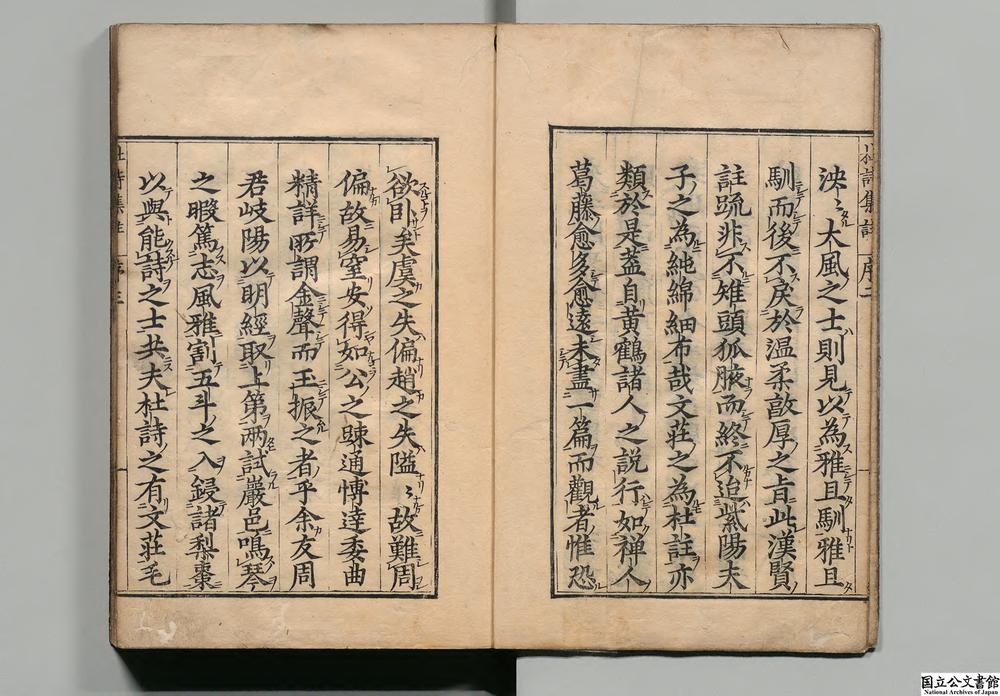 泱〻大風之士則見以為雅且馴雅且
馴而後不戻於温柔敦厚之旨此漢賢
註䟽非不雉頭狐腋而終不迨紫陽夫
子之為純綿細布哉文莊之為杜註亦
類於是葢自黄鶴諸人之説行如禅人
葛藤愈多愈遠未盡一篇而觀者惟恐
欲卧矣虞之失偏趙之失隘〻故難周
偏故易窒安得如公之踈通愽逹委曲
精詳所謂金聲而玉振之者乎余友周
君岐陽以明經取上第兩試巖邑鳴琴
之暇篤志風雅割五斗之入鋟諸梨棗
以與能詩之士共夫杜詩之有文莊毛
杜詩集註 序二
杜詩集註 序三
国立公文書館
National Archives of Japan